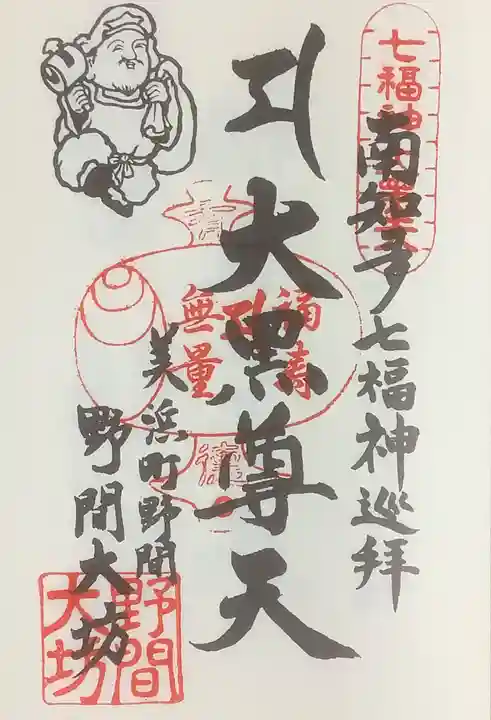 南知多七福神巡拝
七福神
大黒尊天
福寿
無量
美浜町野間
野間大坊
野間
大坊